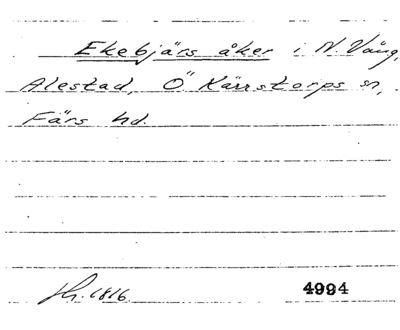 Ekebjärs åker i N. Vång,
Alestad, Ö Kärrstorps sn,
Färs hd.
1816
4994